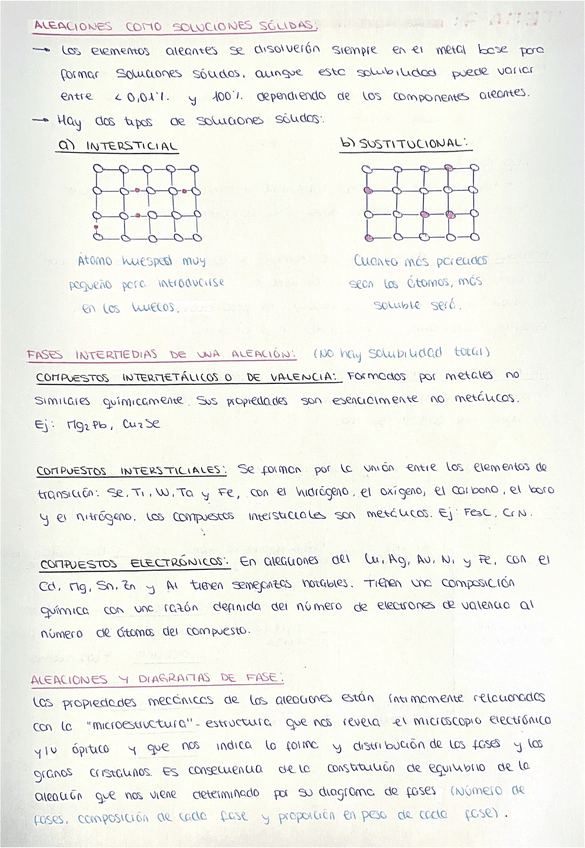 ALEACIONES COMO SOLUCIONES SÓLIDAS:
→ Los elementos aleantes se disolverán siempre en el metal base para
formar soluciones sólidas, aunque esta solubilidad puede variar
entre < 0,01% y 100% dependiendo de los componentes aleantes.
→ Hay dos tipos de soluciones sólidas:
a) INTERSTICIAL
b) SUSTITUCIONAL:
Átomo huésped muy
pequeño para introducirse
en los huecos.
Cuanto más parecidos
sean los átomos, más
soluble será.
FASES INTERMEDIAS DE UNA ALEACIÓN: (No hay solubilidad total)
COMPUESTOS INTERMETÁLICOS O DE VALENCIA: Formados por metales no
similares químicamente. Sus propiedades son esencialmente no metálicas.
Ej: Mg₂Pb, Cu₂Se
COMPUESTOS INTERSTICIALES: Se forman por la unión entre los elementos de
transición: Se, Ti, W, Ta y Fe, con el hidrógeno, el oxígeno, el carbono, el boro
y el nitrógeno. Los compuestos intersticiales son metálicos. Ej: Fe₃C, CrN.
COMPUESTOS ELECTRÓNICOS: En aleaciones del Cu, Ag, Au, Ni y Fe, con el
Cd, Mg, Sn, Zn y Al tienen semejanzas notables. Tienen una composición
química con una razón definida del número de electrones de valencia al
número de átomos del compuesto.
ALEACIONES Y DIAGRAMAS DE FASE:
Las propiedades mecánicas de las aleaciones están íntimamente relacionadas
con la "microestructura" - estructura que nos revela el microscopio electrónico
y/o óptico y que nos indica la forma y distribución de las fases y los
granos cristalinos. Es consecuencia de la constitución de equilibrio de la
aleación que nos viene determinado por su diagrama de fases (Número de
fases, composición de cada fase y proporción en peso de cada fase).